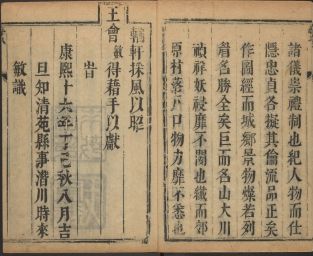 諸儀崇禮制也紀人物而仕
隱忠貞各擬其倫流品正矣
作圖經而城鄉景物燦若列
眉名勝全矣巨而名山大川
禎祥妖祲靡不闕也纖而郊
原村落戶口物力靡不悉也
輶軒採風以昭
王會敏得藉手以獻
旹
康熙十六年丁巳秋八月吉
旦知清苑縣事潛川時來
敏識